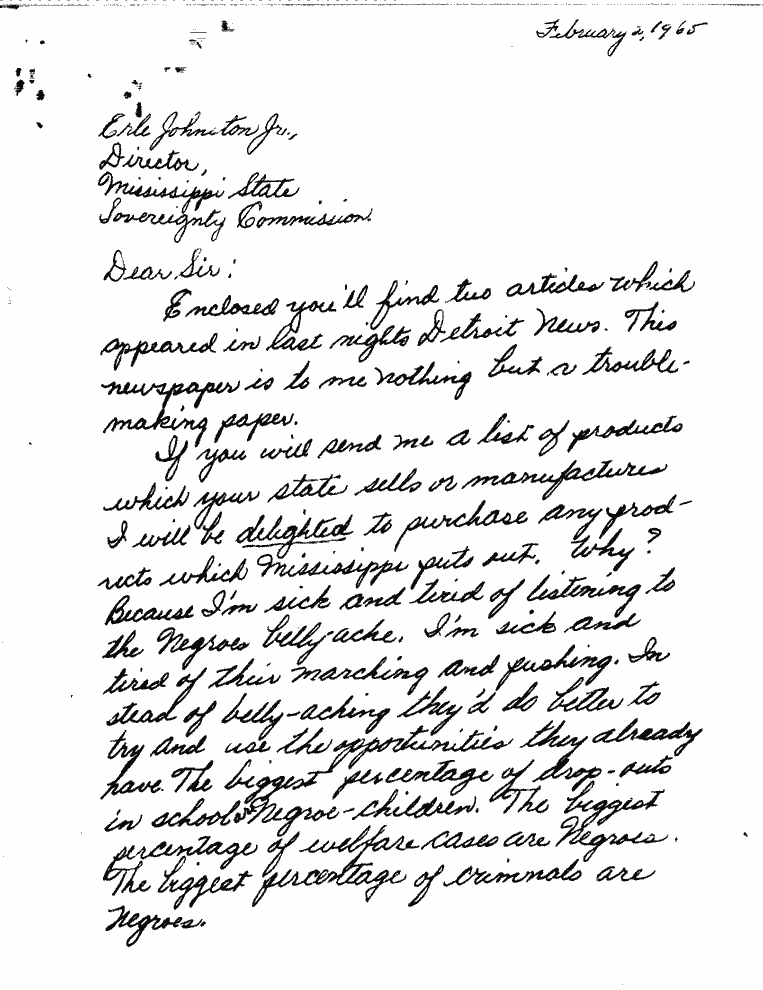 February 2, 1965
Erle Johnston Jr.,
Director,
Mississippi State
Sovereignty Commission.
Dear Sir:
Enclosed you'll find two articles which
appeared in last nights Detroit News. This
newspaper is to me nothing but a trouble-
making paper.
If you will send me a list of products
which your state sells or manufactures
I will be delighted to purchase any prod-
ucts which Mississippi puts out. Why?
Because I'm sick and tired of listening to
the Negroes belly-ache. I'm sick and
tired of their marching and pushing. In
stead of belly-aching they'd do better to
try and use the opportunities they already
have. The biggest percentage of drop-outs
in school are Negroe-children. The biggest
percentage of welfare cases are Negroes.
The biggest percentage of criminals are
Negroes.